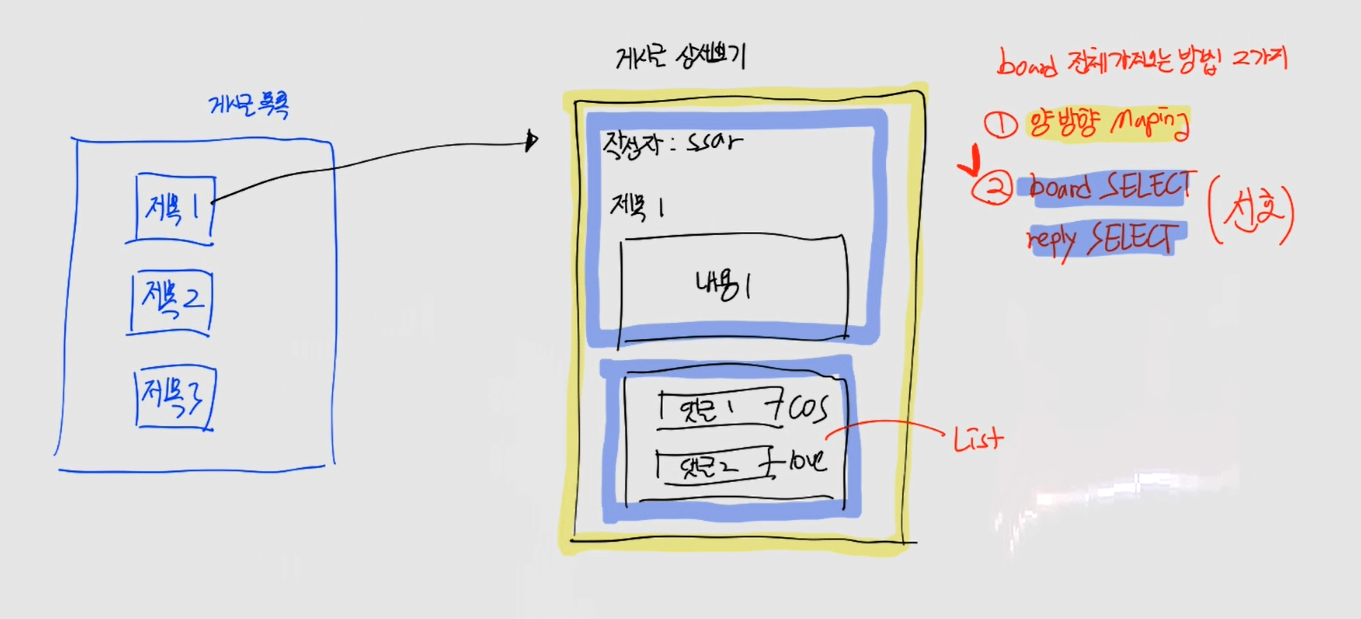 게시글 목록
제목 1
제목 2
제목 3
게시글 상세보기
작성자 : ssar
제목 1
내용 1
댓글 1 cos
댓글 2 love
List
board 전체 가져오는 방법 2가지
① 양방향 Maping
② board SELECT
reply SELECT
(선호)